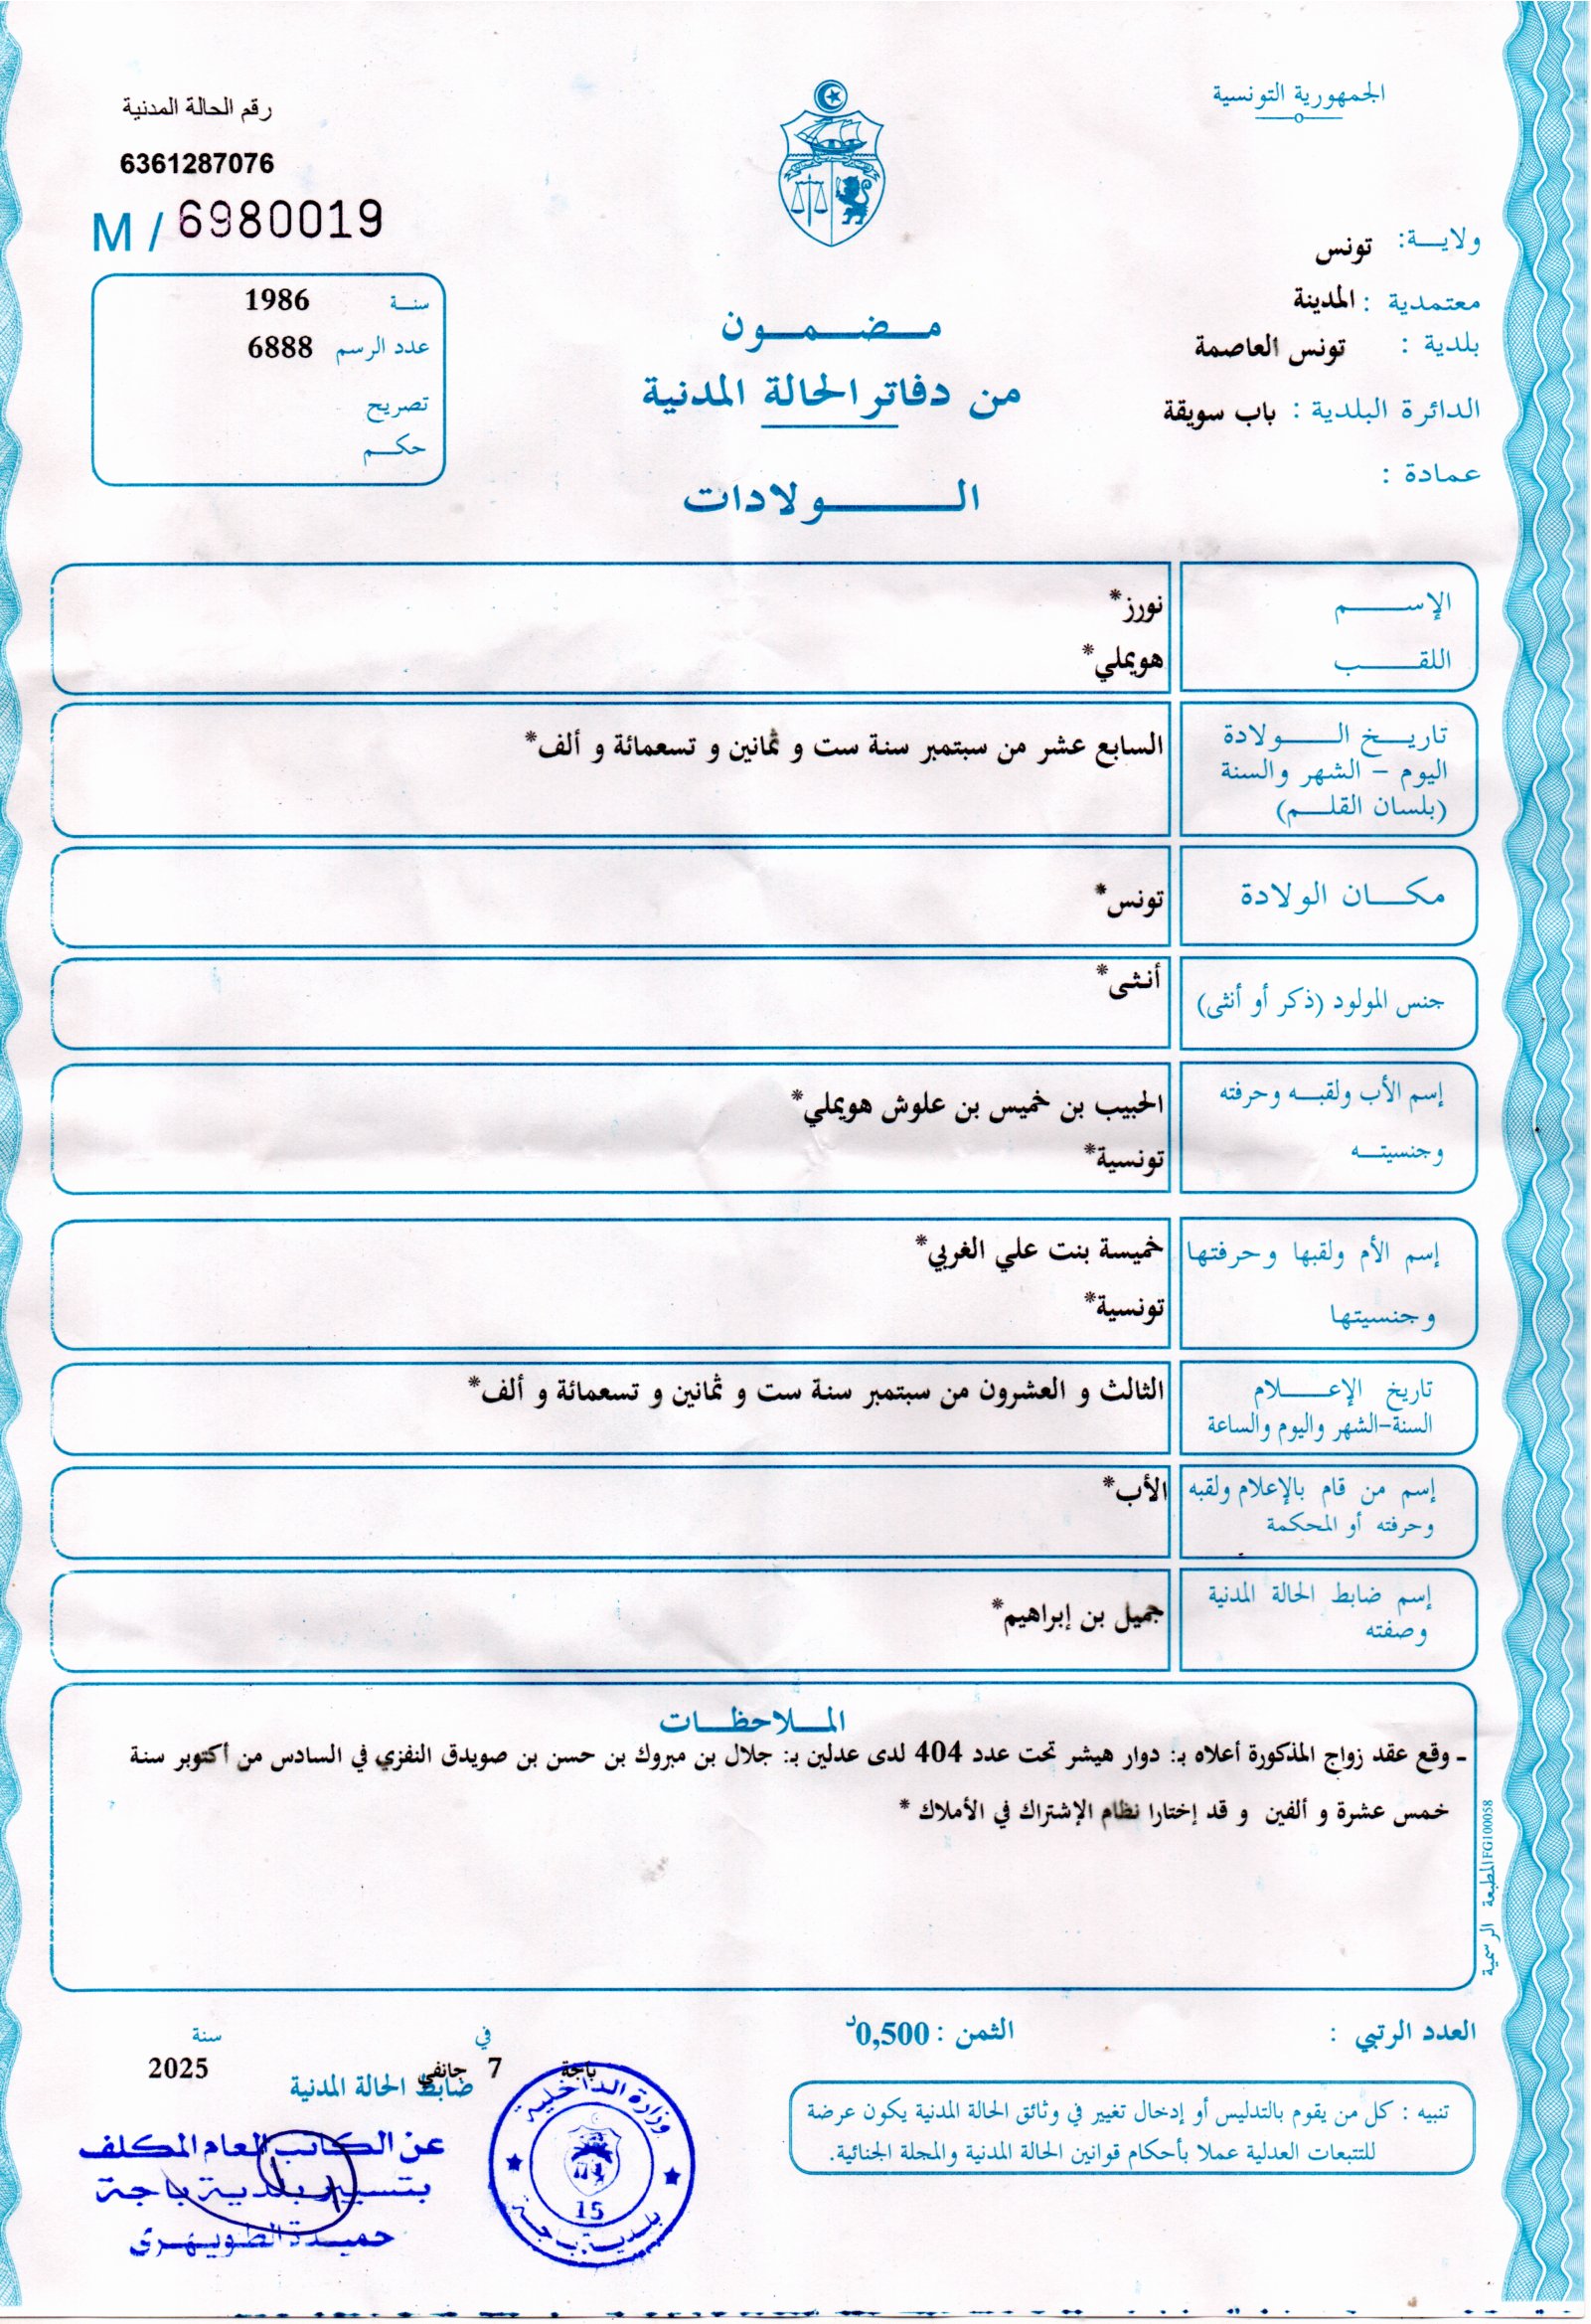 الجمهورية التونسية
رقم الحالة المدنية
6361287076
M / 6980019
ولاية: تونس
معتمدية : المدينة
بلدية : تونس العاصمة
الدائرة البلدية : باب سويقة
عمادة :
سنة 1986
عدد الرسم 6888
تصريح
حكم
مضمون
من دفاتر الحالة المدنية
الولادات
الإسم نورز*
اللقب هويملي*
تاريخ الولادة
اليوم - الشهر والسنة
(بلسان القلم)
السابع عشر من سبتمبر سنة ست و ثمانين و تسعمائة و ألف*
مكان الولادة تونس*
جنس المولود (ذكر أو أنثى) أنثى*
إسم الأب ولقبه وحرفته الحبيب بن خميس بن علوش هويملي*
وجنسيته تونسية*
إسم الأم ولقبها وحرفتها خميسة بنت علي الغربي*
وجنسيتها تونسية*
تاريخ الإعلام الثالث و العشرون من سبتمبر سنة ست و ثمانين و تسعمائة و ألف*
السنة-الشهر واليوم والساعة
إسم من قام بالإعلام ولقبه الأب*
وحرفته أو المحكمة
إسم ضابط الحالة المدنية جميل بن إبراهيم*
وصفته
الملاحظات
- وقع عقد زواج المذكورة أعلاه بـ: دوار هيشر تحت عدد 404 لدى عدلين بـ: جلال بن مبروك بن حسن بن صويدق النفزي في السادس من أكتوبر سنة
خمس عشرة و ألفين و قد إختارا نظام الإشتراك في الأملاك *
المطبعة الرسمية FG100058
العدد الرتبي : الثمن : 0,500د
تنبيه : كل من يقوم بالتدليس أو إدخال تغيير في وثائق الحالة المدنية يكون عرضة
للتتبعات العدلية عملا بأحكام قوانين الحالة المدنية والمجلة الجنائية.
في سنة
باجة 7 جانفي 2025
ضابط الحالة المدنية
عن الكاتب العام المكلف
بتسيير بلدية باجة
حميدة الطويهري
وزارة الداخلية
15
بلدية باجة